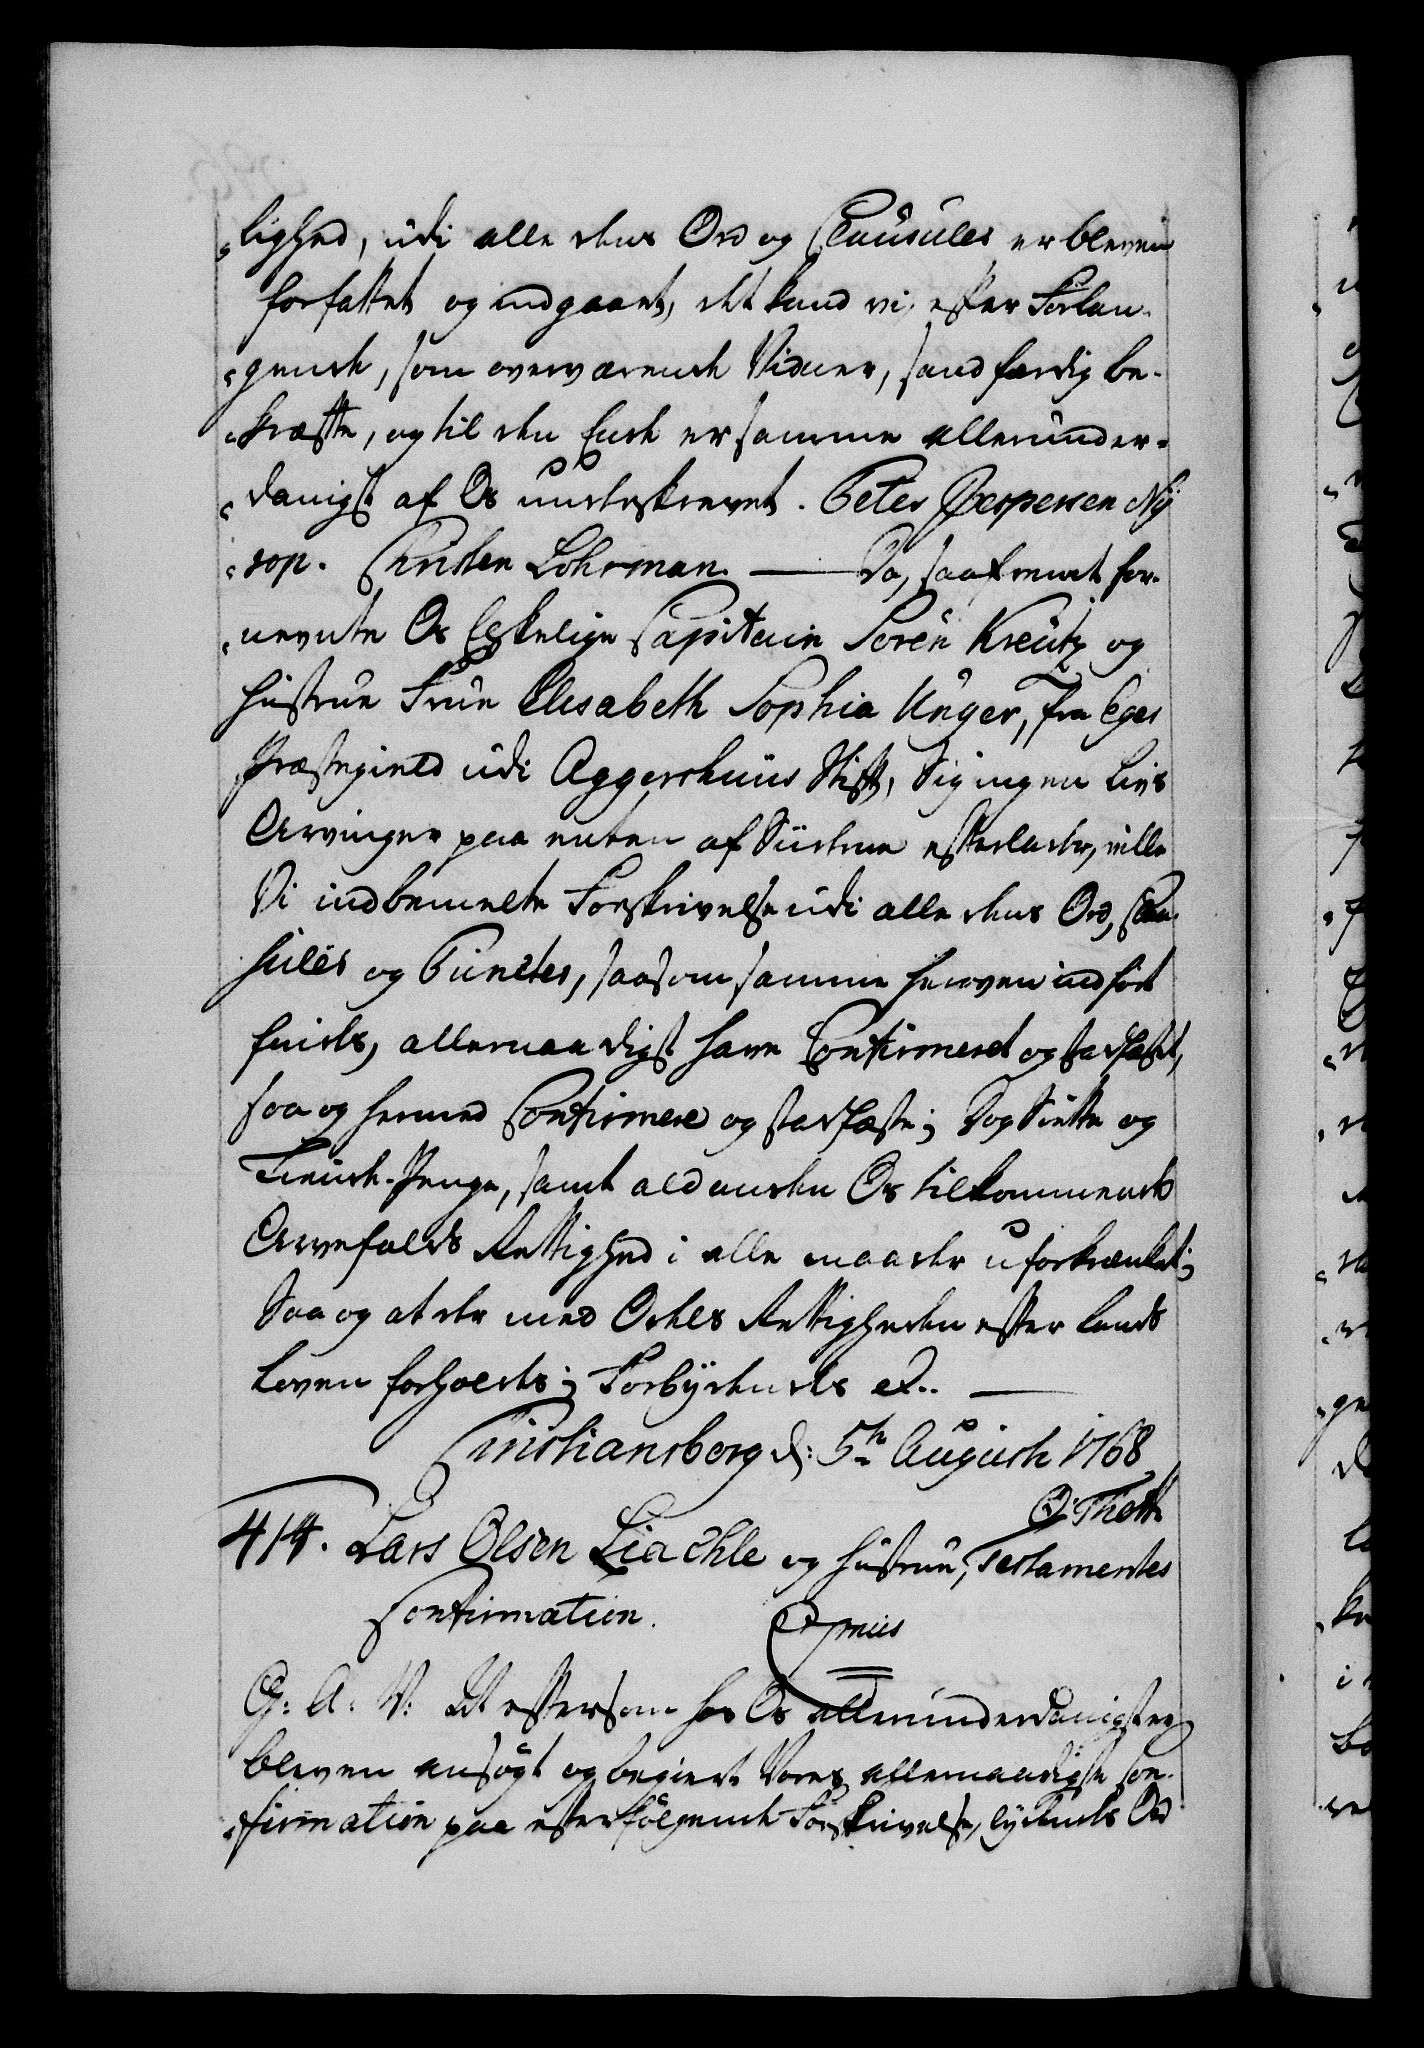 lighed, udi alle dens Ord og Clausules er bleven
forfattet og indgaaet, det kand vi, efter Forlan-
gende, som overværende Vidner, sandfærdig be-
kræfte, og til den Ende er samme allerunder-
danigst af Os underskrevet. Peter Jespersen Ny
rop. Christen Lohrman. — Da, saafremt for-
nevnte Os Elskelige Capitain Sören Kreutz og
Hustrue Frue Elisabeth Sophia Unger, fra Eger
Præstegield udi Aggershuus Stift, Sig ingen Livs
Arvinger paa enten af Siderne efterlader, ville
Vi indbemelte Forskrivelse udi alle dens Ord, Clau-
sules og Puncter, saasom samme heroven indfört
findes, allernaadigst have Confirmeret og stadfæstet,
saa og hermed Confirmere og stadfæste; Dog Siette og
Tiende-Penge, samt ald anden Os tilkommende
Arvefalds Rettighed i alle maader uforkrænket;
Saa og at der med Odels Rettigheden efter Lands
Loven forholdes; Forbydendes etc. —
Christiansborg d: 5te Augusti 1768
O: Thott
414. Lars Olsen Liachle og Hustrue, Testamentes
Confirmation. Gratis
G: A: V: At eftersom hos Os allerunderdanigst er
bleven ansögt og begiert Vores allernaadigste Con-
firmation paa efterfölgende Forskrivelse, lydende Ord